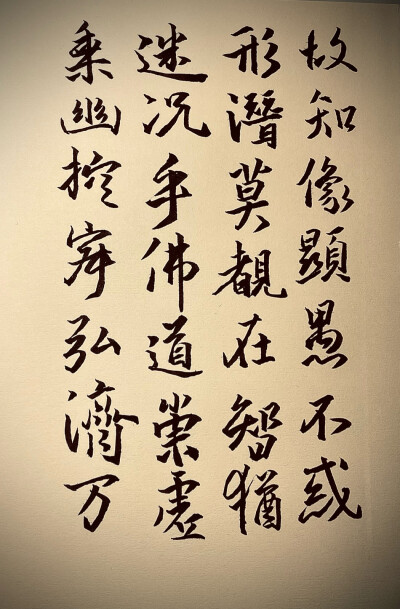 故知像顯愚不惑
形潛莫覩在智猶
迷况乎佛道崇虛
乘幽控寂弘濟万